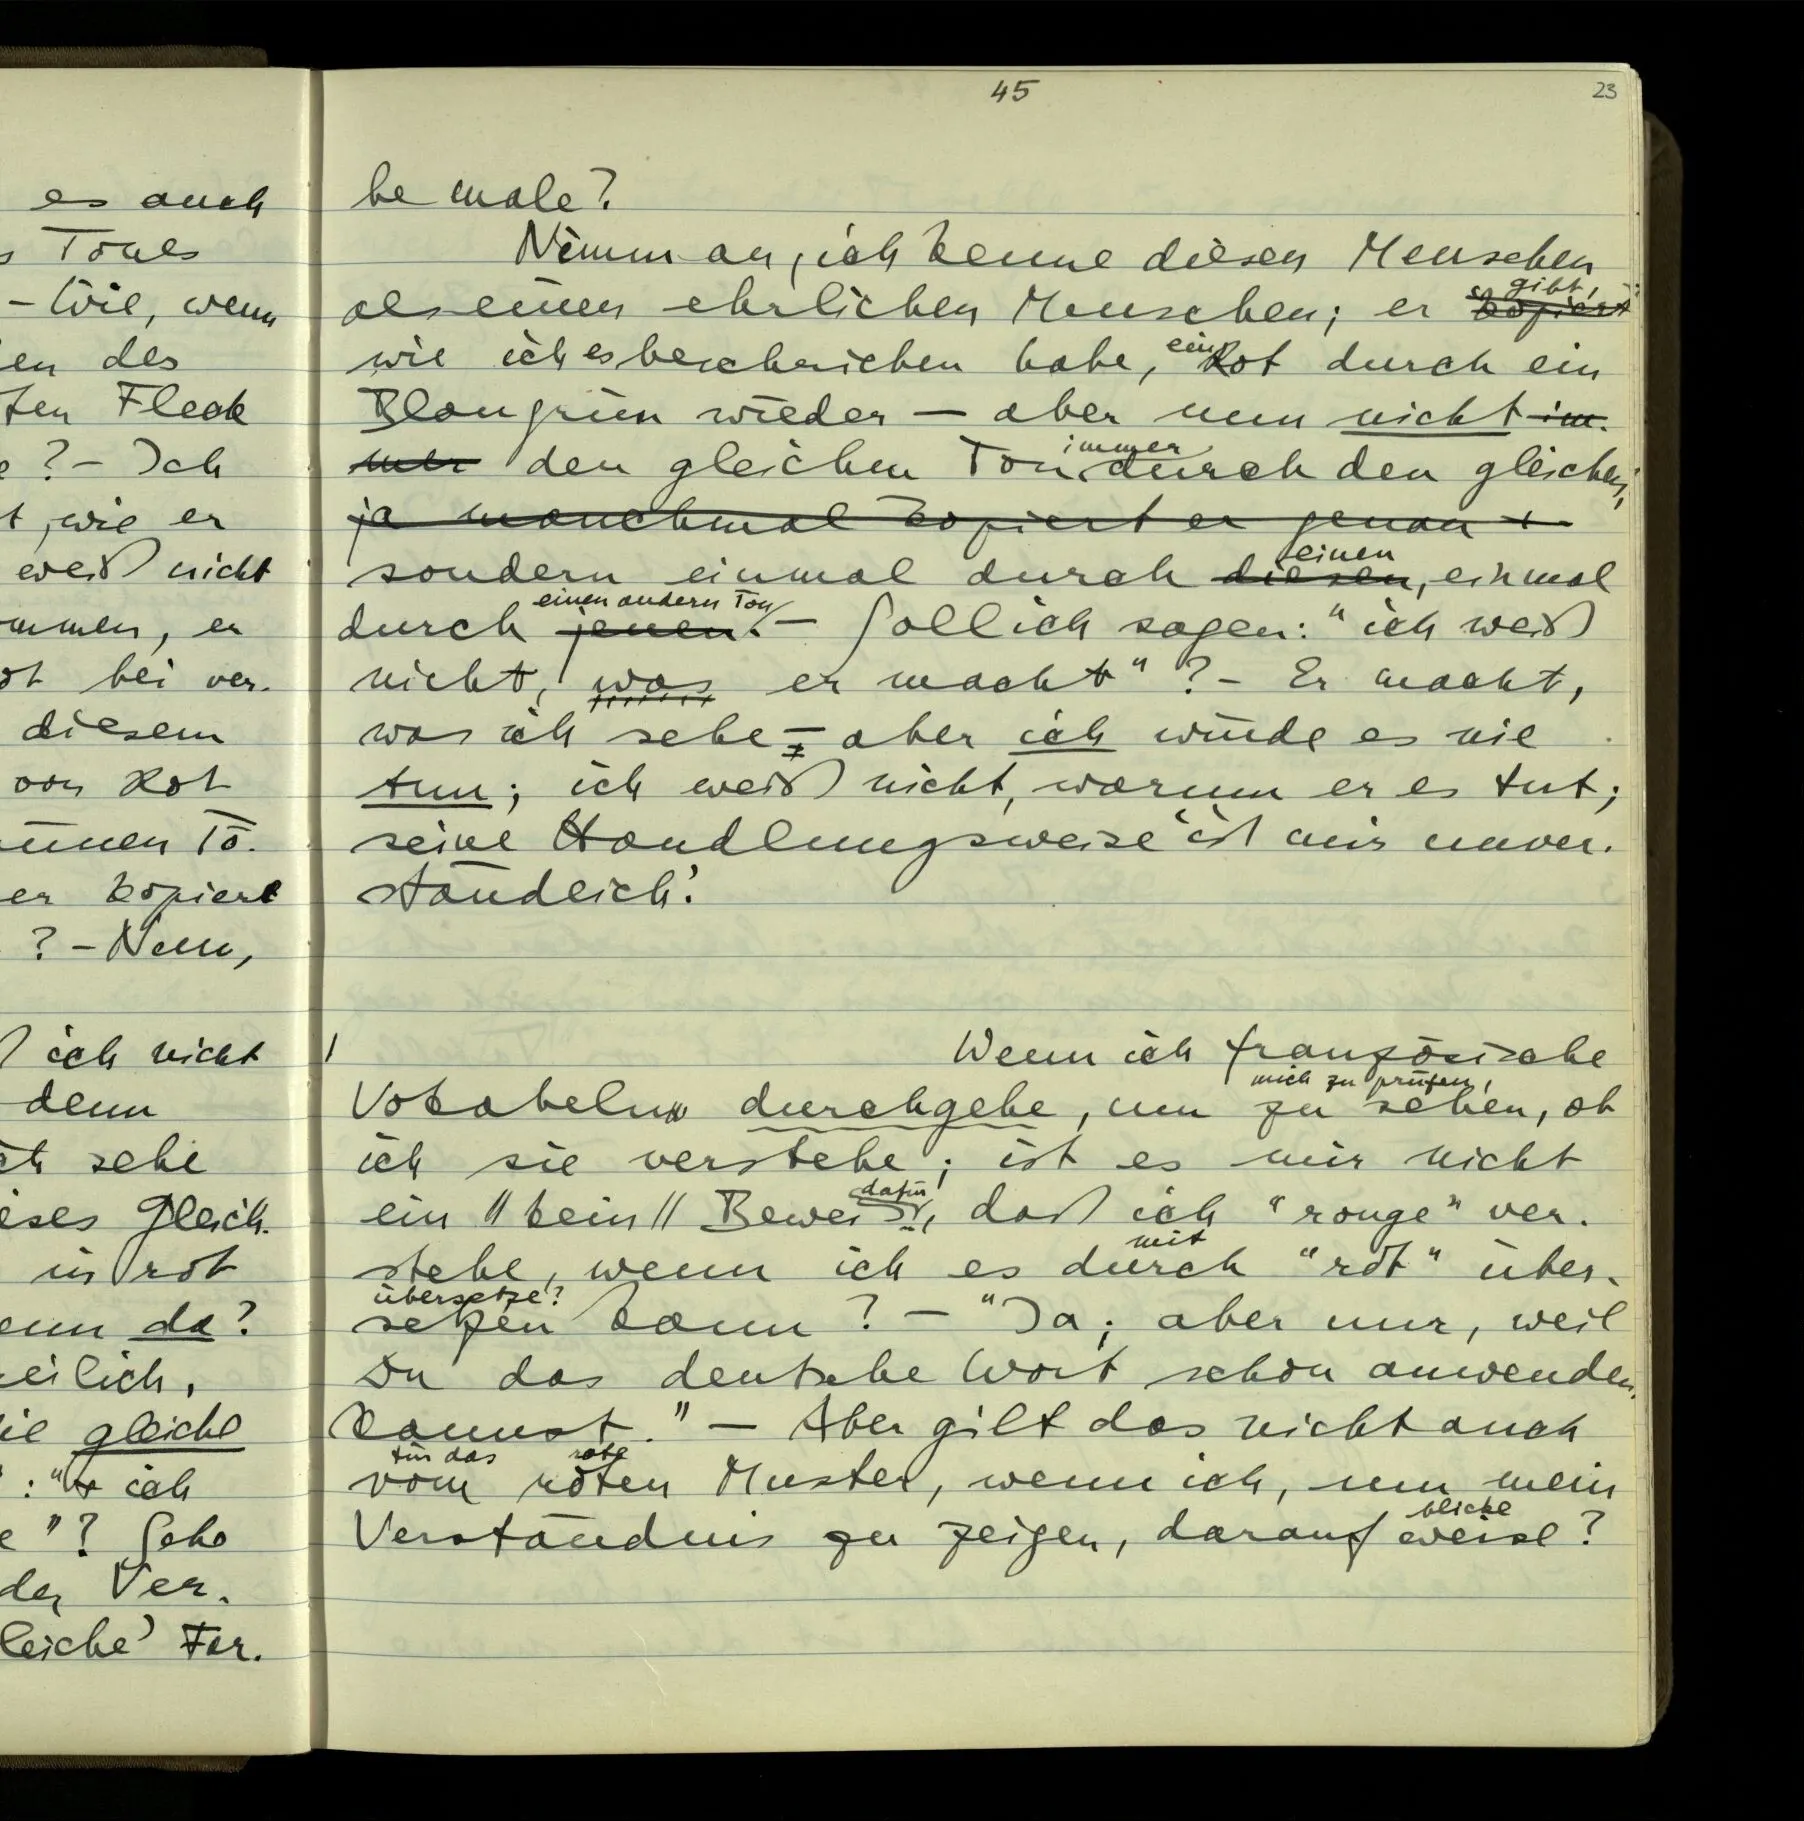 45
23
es auch
Tones
– Wie, wenn
en des
ten Fleck
e ? – Ich
t, wie er
weiß nicht
mmen, er
ot bei ver-
diesem
von Rot
ünen Tö-
er kopiert
? – Nein,
ich nicht
denn
ich sehe
eses Gleich-
in rot
enn da?
eilich,
ie gleiche
": " ich
e"? Sehe
der Ver-
leiche' Far-
be male?
Nimm an, ich kenne diesen Menschen
als einen ehrlichen Menschen; er kopiert
gibt,
wie ich es beschrieben habe, ein Rot durch ein
Blaugrün wieder – aber nun nicht im-
mer den gleichen Ton immer durch den gleichen,
ja manchmal kopiert er genau
sondern einmal durch diesen einen, einmal
durch jenen einen andern Ton. – Soll ich sagen: "ich weiß
nicht, was er macht" ? – Er macht,
was ich sehe – aber ich würde es nie
tun; ich weiß nicht, warum er es tut;
seine Handlungsweise 'ist mir unver-
ständlich'.
/ Wenn ich französische
Vokabeln durchgehe, um mich zu prüfen, zu sehen, ob
ich sie verstehe; ist es mir nicht
ein // kein // Beweis dafür, daß ich "rouge" ver-
stehe, wenn ich es durch mit "rot" über-
setzen kann übersetze? ? – "Ja; aber nur, weil
Du das deutsche Wort schon anwenden
kannst." – Aber gilt das nicht auch
vom roten für das rote Muster, wenn ich, um mein
Verständnis zu zeigen, darauf weise blicke?